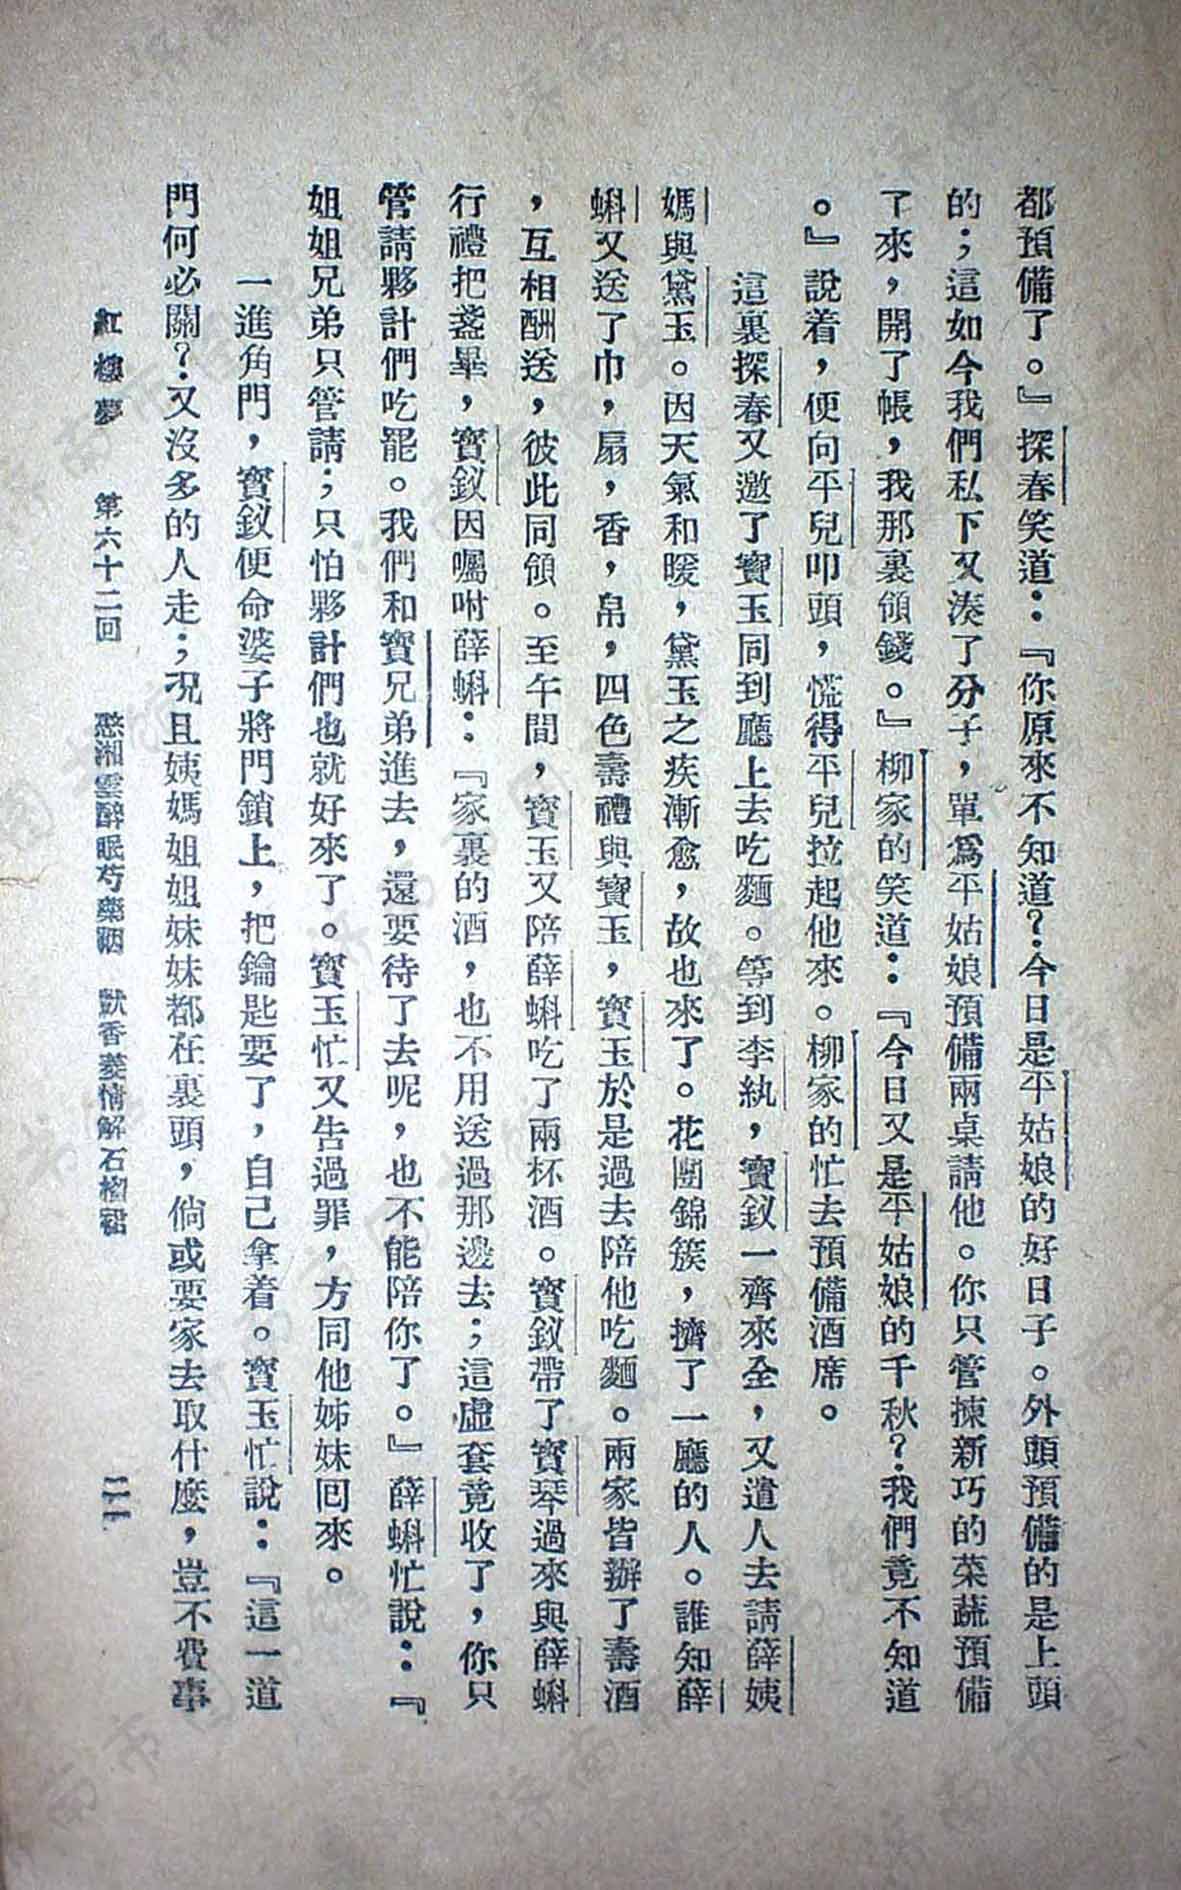 都預備了。』探春笑道：『你原來不知道？今日是平姑娘的好日子。外頭預備的是上頭
的；這如今我們私下又湊了分子，單爲平姑娘預備兩桌請他。你只管揀新巧的菜蔬預備
了來，開了帳，我那裏領錢。』柳家的笑道：『今日又是平姑娘的千秋？我們竟不知道
。』說着，便向平兒叩頭，慌得平兒拉起他來。柳家的忙去預備酒席。
這裏探春又邀了寶玉同到廳上去吃麵。等到李紈，寶釵一齊來全，又遣人去請薛姨
媽與黛玉。因天氣和暖，黛玉之疾漸愈，故也來了。花團錦簇，擠了一廳的人。誰知薛
蝌又送了巾，扇，香，帛，四色壽禮與寶玉，寶玉於是過去陪他吃麵。兩家皆辦了壽酒
，互相酬送，彼此同領。至午間，寶玉又陪薛蝌吃了兩杯酒。寶釵帶了寶琴過來與薛蝌
行禮把盞畢，寶釵因囑咐薛蝌：『家裏的酒，也不用送過那邊去；這虛套竟收了，你只
管請夥計們吃罷。我們和寶兄弟進去，還要待了去呢，也不能陪你了。』薛蝌忙說：『
姐姐兄弟只管請；只怕夥計們也就好來了。寶玉忙又告過罪，方同他姊妹回來。
一進角門，寶釵便命婆子將門鎖上，把鑰匙要了，自己拿着。寶玉忙說：『這一道
門何必關？又沒多的人走；况且姨媽姐姐妹妹都在裏頭，倘或要家去取什麼，豈不費事
紅樓夢 第六十二回 憨湘雲醉眠芍藥裀 獃香菱情解石榴裙